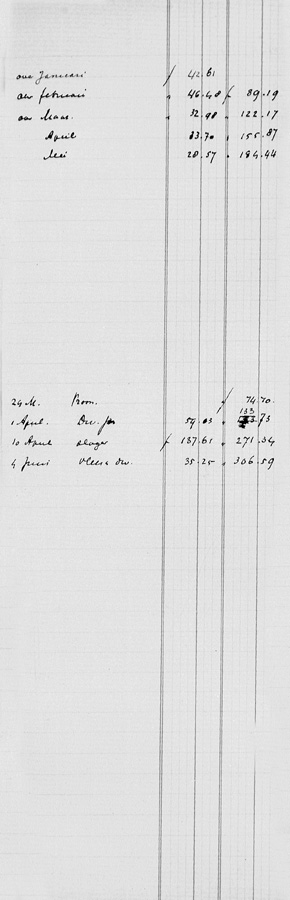 over Januari f 42.61
over februari " 46.48 f 89.19
over Maart. " 32.98 " 122.17
April 33.70 " 155.87
Mei " 28.57 " 184.44
24 M. f 74.70.
1 April. Div. 59.03 " 133.73
10 April slager f 137.61 " 271.34
4 Juni vlees div. 35.25 " 306.59